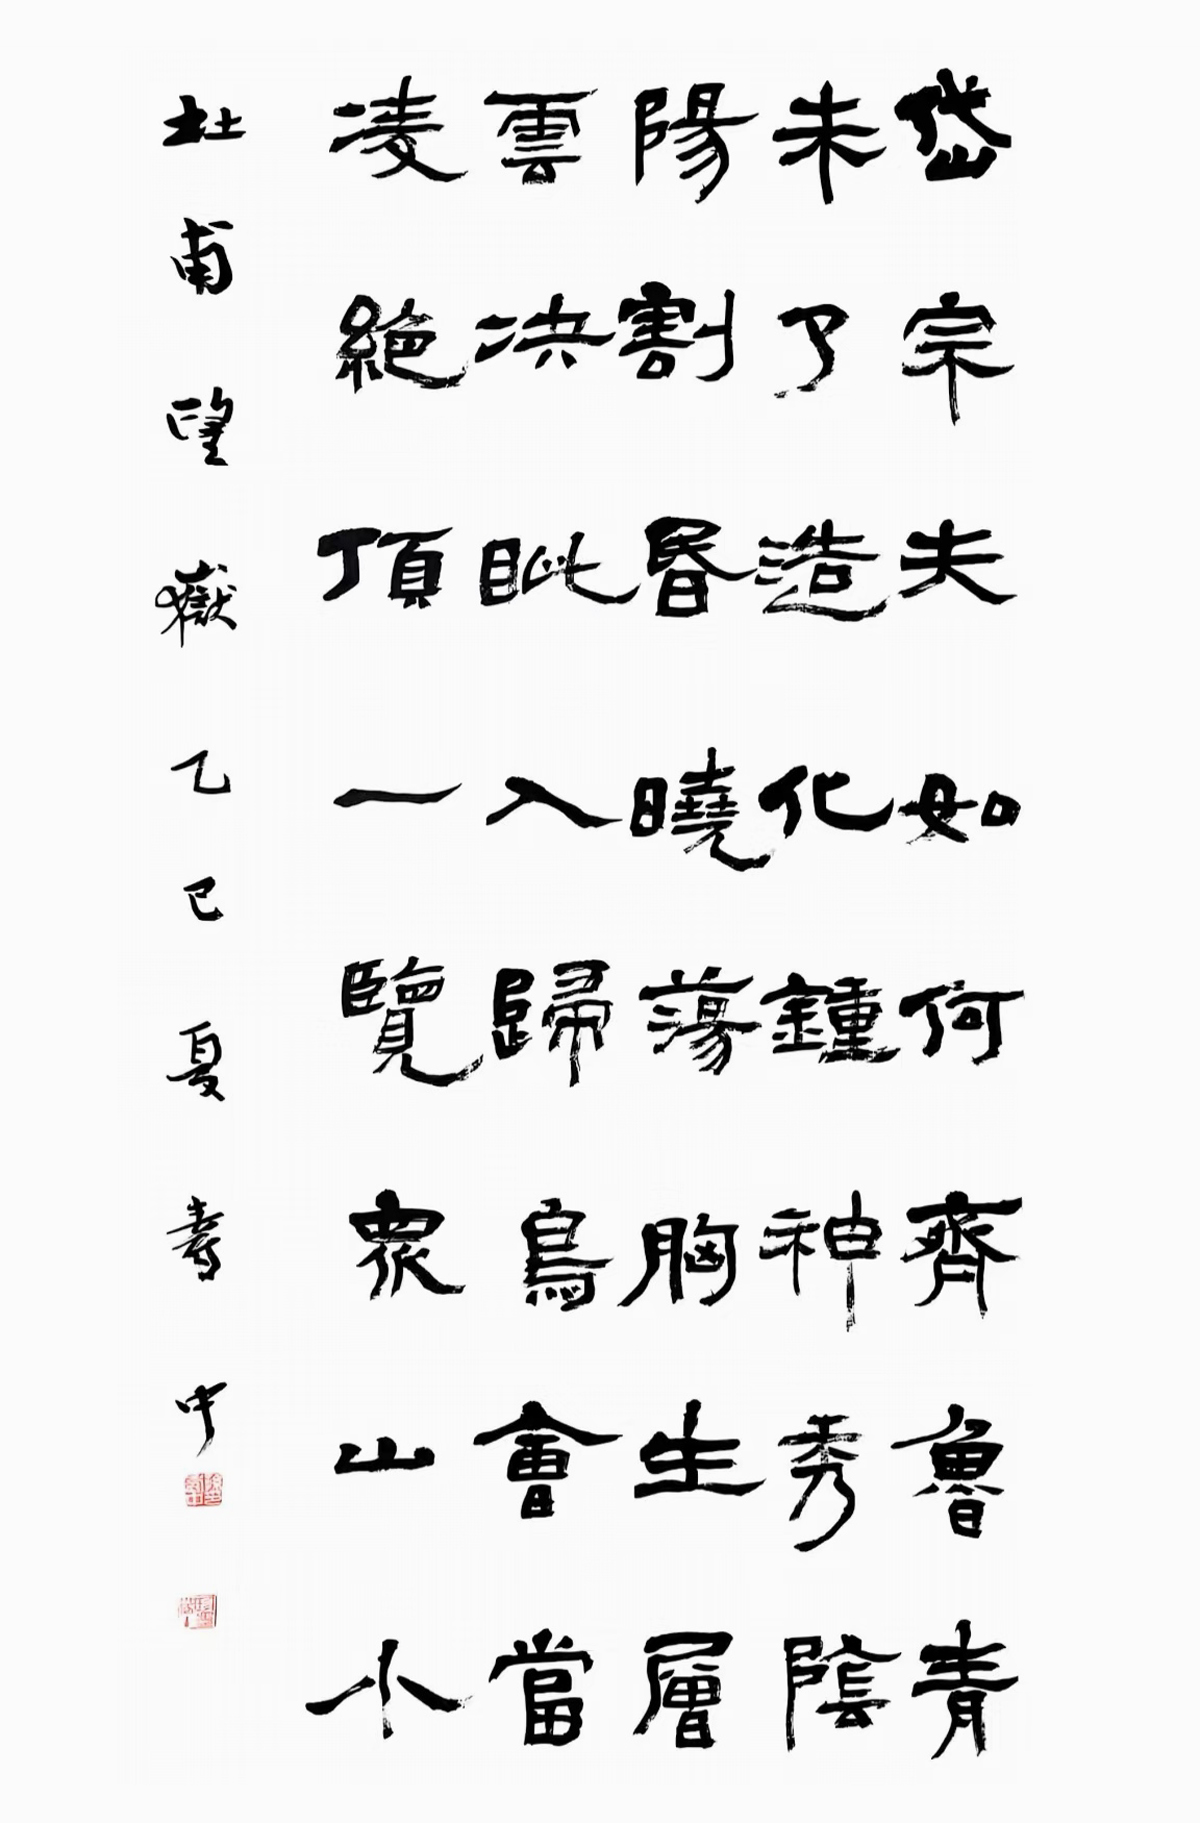 岱宗夫如何齊魯青
未了造化鍾神秀陰
陽割昏曉蕩胸生層
雲決眥入歸鳥會當
凌絕頂一覽眾山小
杜甫望嶽乙巳夏壽中